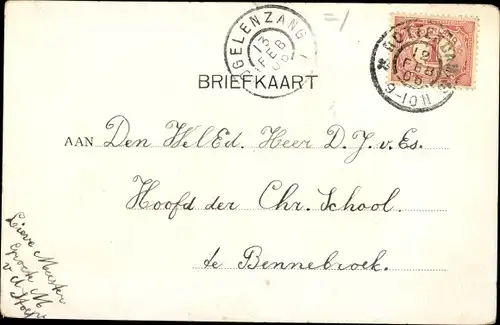 VOGELENZANG
13 FEB 06
=1
ROTTERDAM
12 FEB 06
9-10N
BRIEFKAART
AAN Den Wel Ed. Heer D. J. v. Es.
Hoofd der Chr. School
te Bennebroek.
Lieve Meester
v. d.